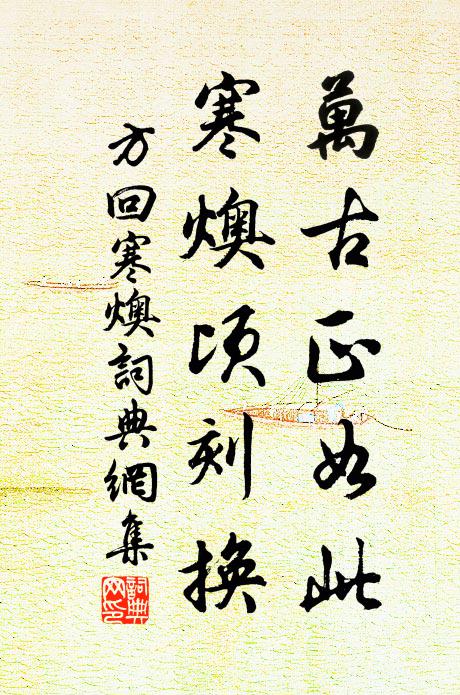 萬古正如此
寒燠頃刻換
方回寒燠詞典網集
詞典网印